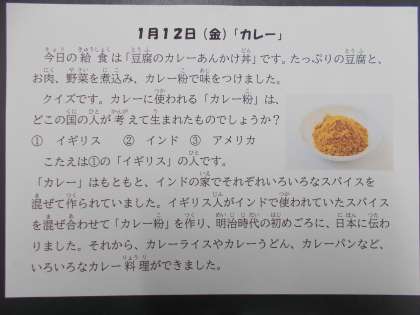 1月12日(金)「カレー」
今日の給食は「豆腐のカレーあんかけ丼」です。たっぷりの豆腐と、
お肉、野菜を煮込み、カレー粉で味をつけました。
クイズです。カレーに使われる「カレー粉」は、
どこの国の人が考えて生まれたものでしょうか?
① イギリス ② インド ③ アメリカ
こたえは①の「イギリス」の人です。
「カレー」はもともと、インドの家でそれぞれいろいろなスパイスを
混ぜて作られていました。イギリス人がインドで使われていたスパイス
を混ぜ合わせて「カレー粉」を作り、明治時代の初めごろに、日本に伝わ
りました。それから、カレーライスやカレーうどん、カレーパンなど、
いろいろなカレー料理ができました。